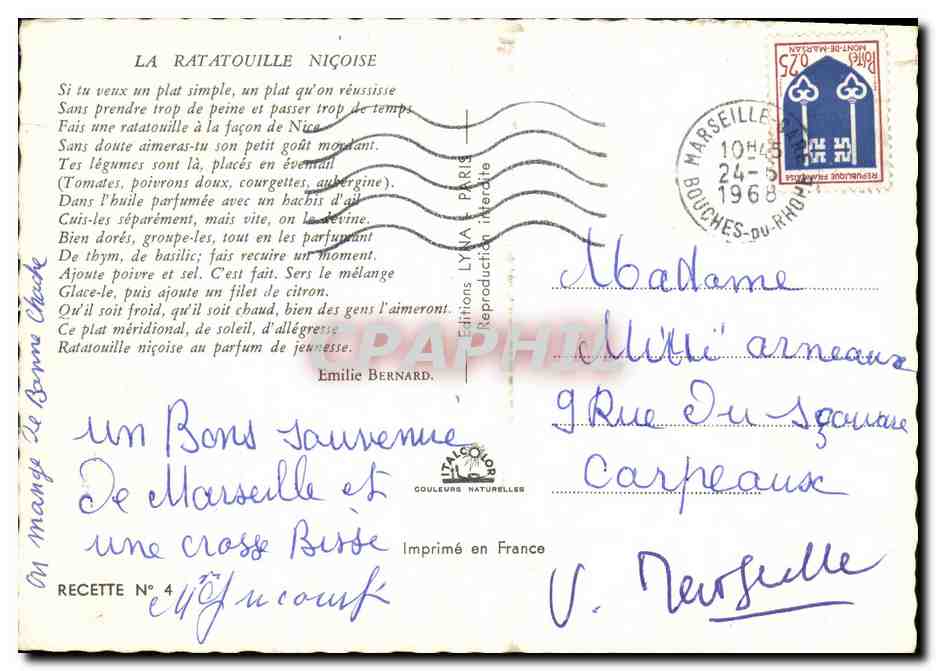 LA RATATOUILLE NIÇOISE
Si tu veux un plat simple, un plat qu'on réussisse
Sans prendre trop de peine et passer trop de temps
Fais une ratatouille à la façon de Nice
Sans doute aimeras-tu son petit goût mordant.
Tes légumes sont là, placés en éventail
(Tomates, poivrons doux, courgettes, aubergine).
Dans l'huile parfumée avec un hachis d'ail
Cuis-les séparément, mais vite, on le devine.
Bien dorés, groupe-les, tout en les parfumant
De thym, de basilic; fais recuire un moment.
Ajoute poivre et sel. C'est fait. Sers le mélange
Glace-le, puis ajoute un filet de citron.
Qu'il soit froid, qu'il soit chaud, bien des gens l'aimeront.
Ce plat méridional, de soleil, d'allégresse
Ratatouille niçoise au parfum de jeunesse.
Emilie BERNARD.
un Bons souvenie
De Marseille et
une crosse Bisse
RECETTE N° 4
on mange De Banne Chache
Editions LYNA - PARIS
Reproduction interdite
ITALCOLOR
COULEURS NATURELLES
Imprimé en France
POSTES 0,25
MONT-DE-MARSAN
REPUBLIQUE FRANÇAISE
MARSEILLE-GARE
10H45
24-5
1968
BOUCHES-DU-RHONE
Madame
arneaux
9 Rue Du sqouare
Carpeaux
V.
CPAPHIL